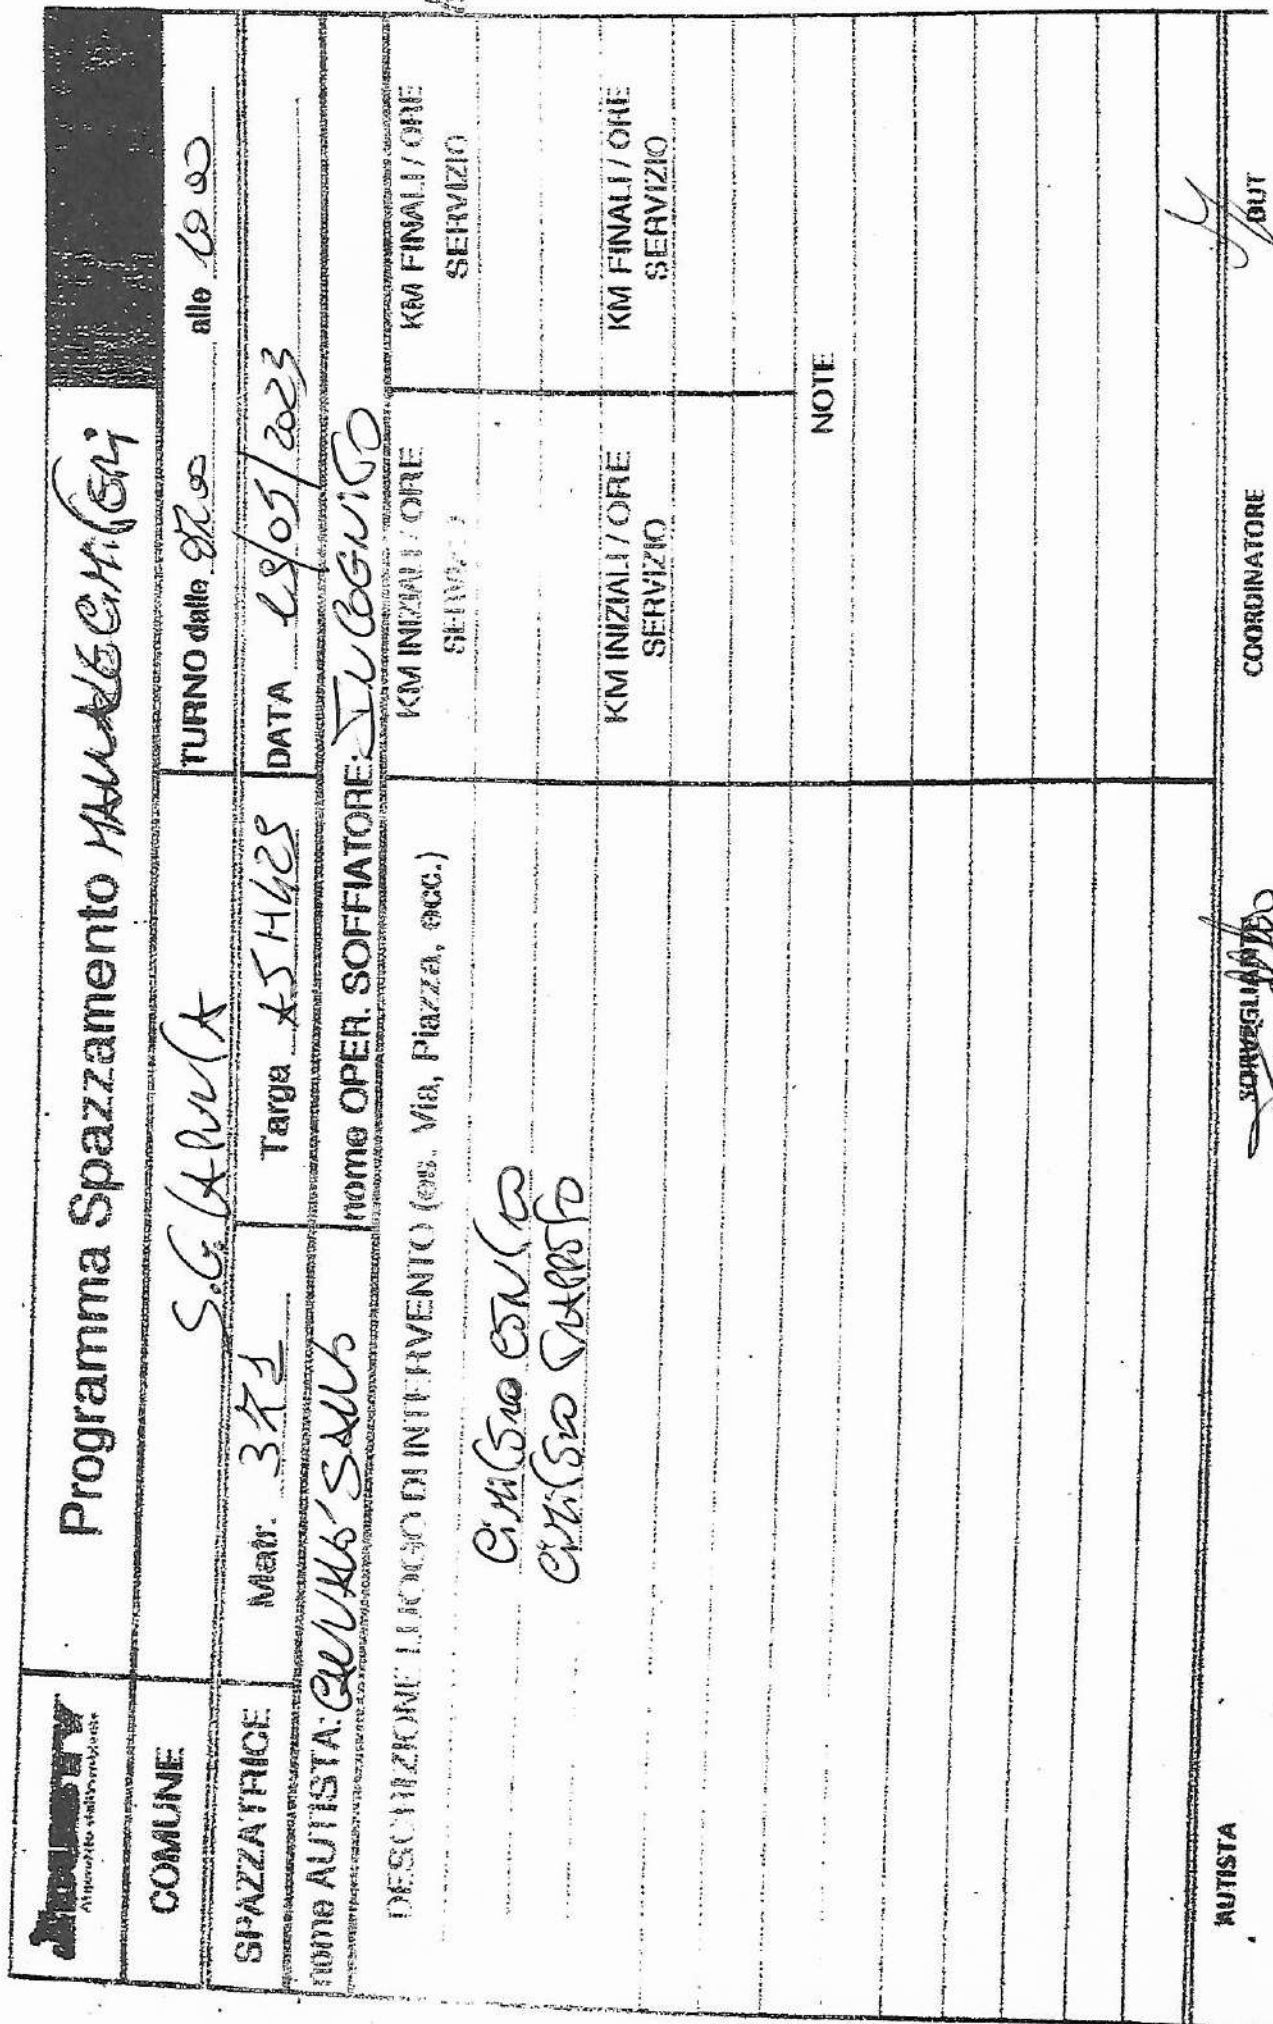 Programma Spazzamento
COMUNE S.G. LA PUNTA TURNO dalle alle
SPAZZATRICE Matr. Targa DATA 19/05/2023
nome AUTISTA: nome OPER. SOFFIATORE: INCOGNITO
DESCRIZIONE LUOGO DI INTERVENTO (es. Via, Piazza, ecc.) KM INIZIALI / ORE SERVIZIO KM FINALI / ORE SERVIZIO
CIMITERO CENTRO
CIMITERO TRAPPETO
KM INIZIALI / ORE SERVIZIO KM FINALI / ORE SERVIZIO
NOTE
AUTISTA SORVEGLIANTE COORDINATORE DUT